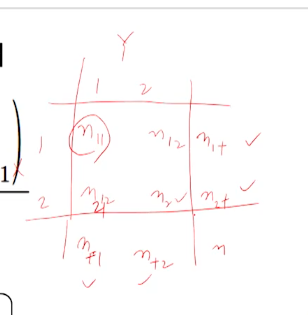 Y
1 2
1 n11 n12 n1+ ✓
1) 
2 n2✓ n2+ ✓
n+1 n+2 n
✓ ✓